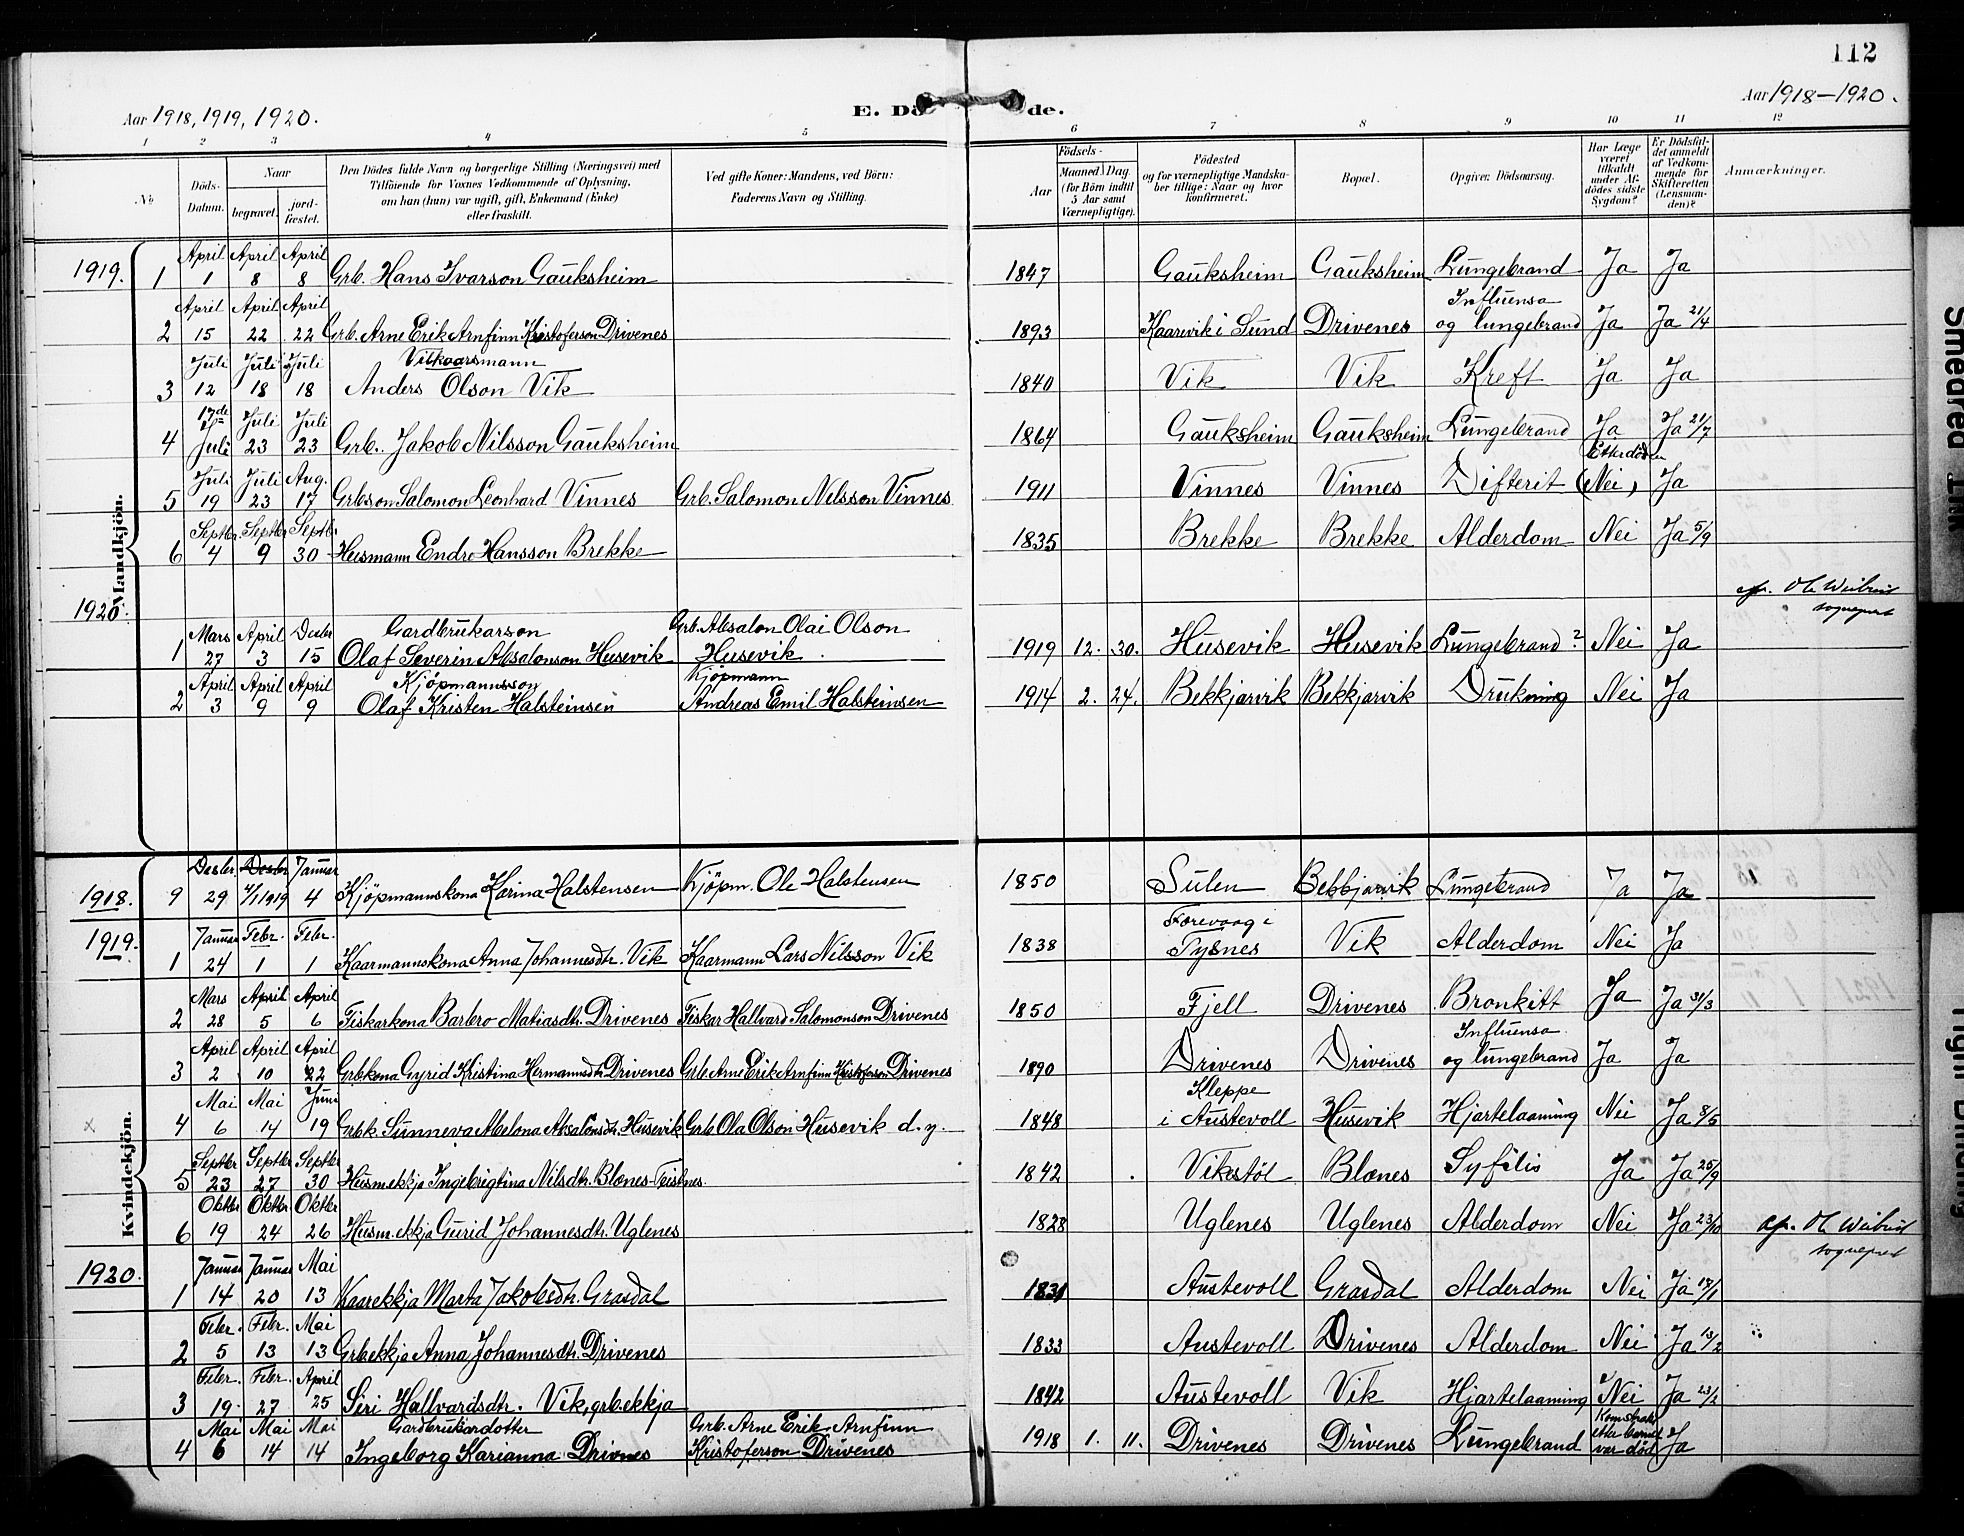 112
Aar 1918, 1919, 1920.
E. Dö de.
Aar 1918–1920.
1 2 3 4 5 6 7 8 9 10 11 12
No
Döds-Datum.
Naar
begravet.
jord-fæstet.
Den Dödes fulde Navn og borgerlige Stilling (Næringsvei) med
Tilföiende for Voxnes Vedkommende af Oplysning,
om han (hun) var ugift, gift, Enkemand (Enke)
eller fraskilt.
Ved gifte Koner: Mandens, ved Börn:
Faderens Navn og Stilling.
Födsels-
Aar
Maaned Dag
(for Börn indtil
5 Aar samt
Værnepligtige).
Födested
og for værnepligtige Mandska-
ber tillige: Naar og hvor
konfirmeret.
Bopæl.
Opgiven Dödsaarsag.
Har Læge
været
tilkaldt
under Af-
dödes sidste
Sygdom?
Er Dödsfal-
det anmeldt
af Vedkom-
mende for
Skifteretten
(Lensman-
den)?
Anmærkninger.
Mandkjön.
1919. 1 April 1 April 8 April 8 Grb. Hans Ivarson Gauksheim 1847 Gauksheim Gauksheim Lungebrand Ja Ja
2 April 15 April 22 April 22 Grb. Arne Erik Arnfinn Kristoferson Drivenes 1893 Kaarevik i Sund Drivenes Influensa og lungebrand Ja Ja 21/4
3 Juli 12 Juli 18 Juli 18 Vilkaarsmann Anders Olson Vik 1840 Vik Vik Kreft Ja Ja
4 17de Juli Juli 23 Juli 23 Grb. Jakob Nilsson Gauksheim 1864 Gauksheim Gauksheim Lungebrand Ja Ja 21/7
5 Juli 19 Juli 23 Aug. 17 Grbson Salomon Leonhard Vinnes Grb. Salomon Nilsson Vinnes 1911 Vinnes Vinnes Difterit Etter döden (Nei) Ja
6 Septbr. 4 Septbr. 9 Septbr. 30 Husmann Endre Hansson Brekke 1835 Brekke Brekke Alderdom Nei Ja 5/9
sogneprest
1920. 1 Mars 27 April 3 Desbr 15 Gardbrukarson Olaf Severin Absalonson Husevik Grb. Absalon Olai Olson Husevik 1919 12. 30. Husevik Husevik Lungebrand? Nei Ja
2 April 3 April 9 April 9 Kjöpmannsson Olaf Kristen Halsteinsen Kjöpmann Andreas Emil Halsteinsen 1914 2. 24. Bekkjarvik Bekkjarvik Drukning Nei Ja
Kvindekjön.
1918. 9 Desbr 29 Desbr 4/1 1919 Januar 4 Kjöpmannskona Karina Halstensen Kjöpm. Ole Halstensen 1850 Sulen Bekkjarvik Lungebrand Ja Ja
1919. 1 Januar 24 Febr. 1 Febr. 1 Kaarmannskona Anna Johannesdtr. Vik Kaarmann Lars Nilsson Vik 1838 Forevaag i Tysnes Vik Alderdom Nei Ja
2 Mars 28 April 5 April 6 Fiskarkona Barbro Matiasdtr. Drivenes Fiskar Hallvard Salomonson Drivenes 1850 Fjell Drivenes Bronkitt Ja Ja 31/3
3 April 2 April 10 April 22 Grbkona Gyrid Kristina Hermannsdtr Drivenes Grb Arne Erik Arnfinn Kristoferson Drivenes 1890 Drivenes Drivenes Influensa og lungebrand Ja Ja
x 4 Mai 6 Mai 14 Juni 19 Grbk. Sunneva Abelona Absalonsdtr. Husevik Grb Ola Olson Husevik d.y. 1848 Kleppe i Austevoll Husevik Hjartelaaming Nei Ja 8/5
5 Septbr 23 Septbr 27 Septbr 30 Husm.ekkja Ingebrigtina Nilsdtr. Blænes-Teistnes. 1842 Vikestöl Blænes Syfilis Ja Ja 25/9
6 Oktbr 19 Oktbr 24 Oktbr 26 Husm.ekkja Gurid Johannesdtr. Uglenes 1828 Uglenes Uglenes Alderdom Nei Ja 23/10
sogneprest
1920. 1 Januar 14 Januar 20 Mai 13 Kaarekkja Marta Jakobsdtr. Grasdal 1831 Austevoll Grasdal Alderdom Nei Ja 18/1
2 Febr. 5 Febr. 13 Mai 13 Grbekkja Anna Johannesdtr. Drivenes 1833 Austevoll Drivenes Alderdom Nei Ja 13/2
3 Febr. 19 Febr. 27 April 25 Siri Hallvardsdtr. Vik, grb.ekkja 1842 Austevoll Vik Hjartelaaming Nei Ja 23/2
4 Mai 6 Mai 14 Mai 14 Gardbrukardotter Ingeborg Karianna Drivnes Grb. Arne Erik Arnfinn Kristoferson Drivenes 1918 1. 11. Drivenes Drivenes Lungebrand etter barnet var död Ja
Smeared Ink
Tight Binding